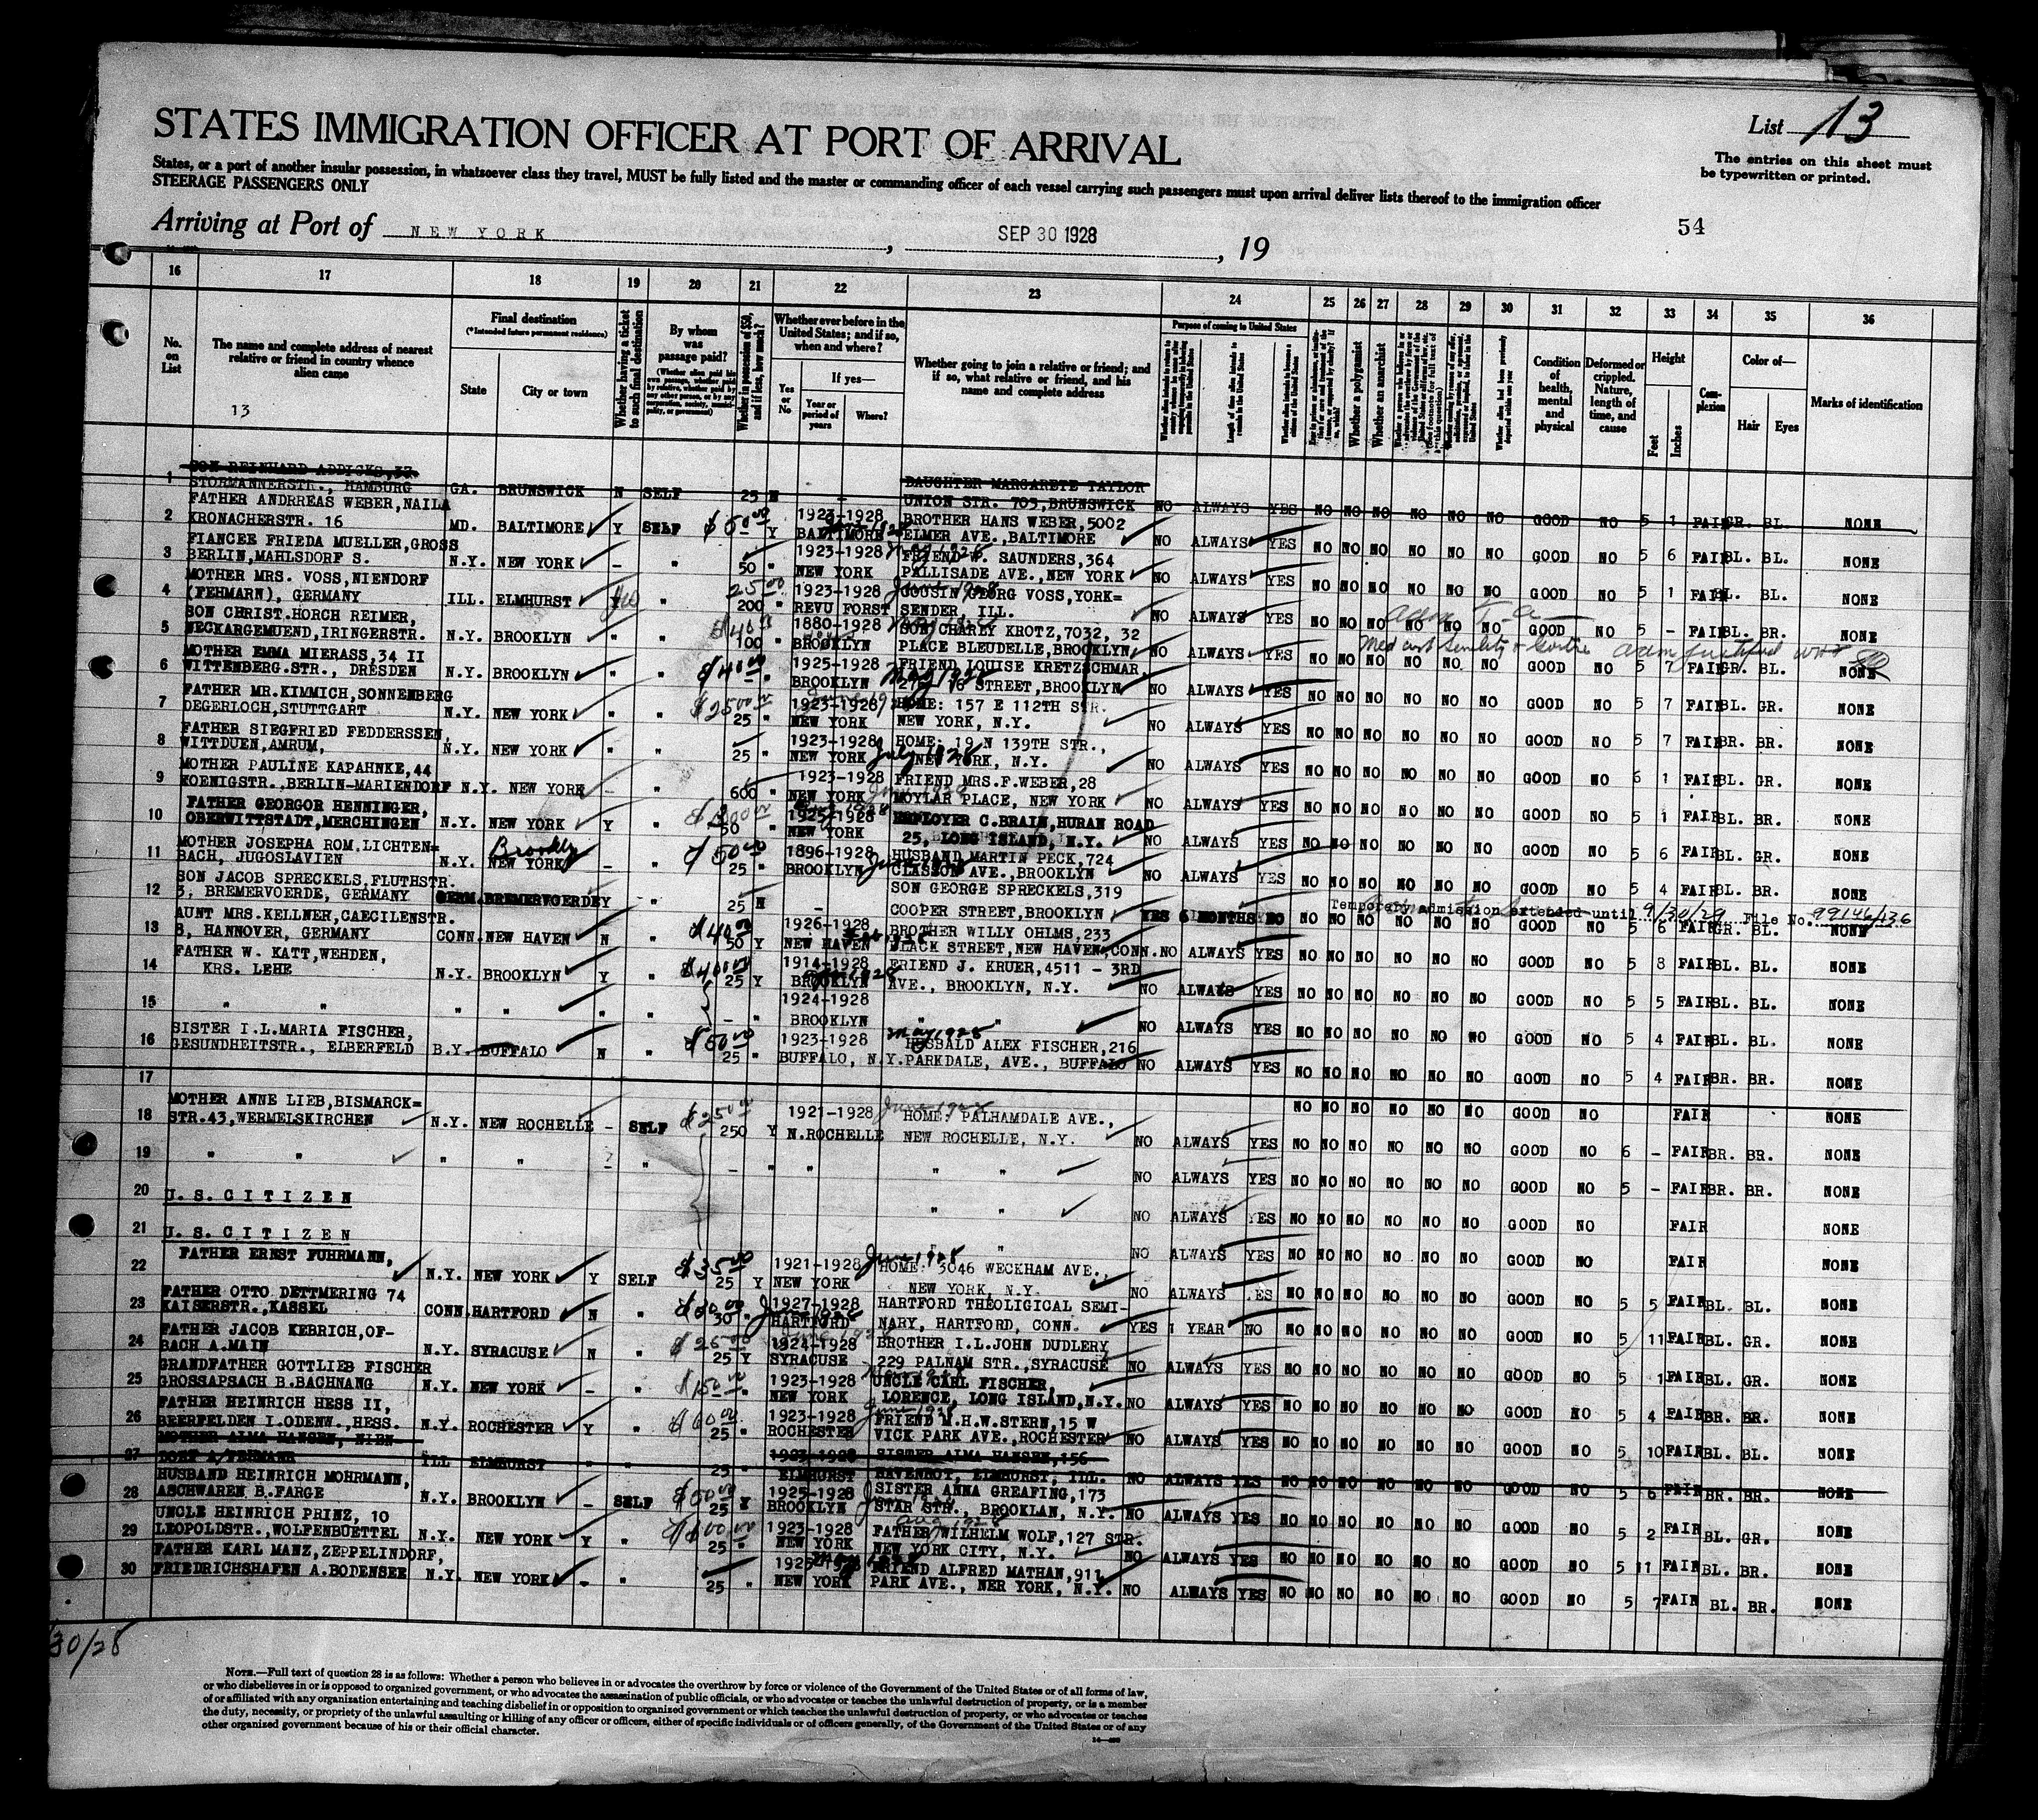 STATES IMMIGRATION OFFICER AT PORT OF ARRIVAL
List 13
The entries on this sheet must
be typewritten or printed.
States, or a port of another insular possession, in whatsoever class they travel, MUST be fully listed and the master or commanding officer of each vessel carrying such passengers must upon arrival deliver lists thereof to the immigration officer
STEERAGE PASSENGERS ONLY
Arriving at Port of NEW YORK, SEP 30 1928, 19
54
16 17 18 19 20 21 22 23 24 25 26 27 28 29 30 31 32 33 34 35 36
No. on List
The name and complete address of nearest relative or friend in country whence alien came
13
Final destination
(*Intended future permanent residence)
State
City or town
Whether having a ticket to such final destination
By whom was passage paid?
Whether in possession of $50, and if less, how much?
Whether ever before in the United States; and if so, when and where?
Yes or No
If yes—
Year or period of years
Where?
Whether going to join a relative or friend; and if so, what relative or friend, and his name and complete address
Purpose of coming to United States
Whether a polygamist
Whether an anarchist
Condition of health, mental and physical
Deformed or crippled. Nature, length of time, and cause
Height
Feet
Inches
Complexion
Color of—
Hair
Eyes
Marks of identification
1 SON REINHARD ADDICKS,37 DAUGHTER MARGARETE TAYLOR
STORMANNERSTR., HAMBURG GA. BRUNSWICK N SELF 25 N – UNION STR. 703,BRUNSWICK NO ALWAYS YES NO NO NO NO NO NO GOOD NO 5 1 FAIR GR. BL. NONE
2 FATHER ANDRREAS WEBER,NAILA 1923-1928 BROTHER HANS WEBER,5002
KRONACHERSTR. 16 MD. BALTIMORE Y SELF Y BALTIMORE ELMER AVE.,BALTIMORE NO ALWAYS YES NO NO NO NO NO NO GOOD NO 5 6 FAIR BL. BL. NONE
3 FIANCEE FRIEDA MUELLER,GROSS 1923-1928 FRIEND W. SAUNDERS,364
BERLIN,MAHLSDORF S. N.Y. NEW YORK – " 50 " NEW YORK PALLISADE AVE.,NEW YORK NO ALWAYS YES NO NO NO NO NO NO GOOD NO 5 1 FAIR BL. BL. NONE
4 MOTHER MRS. VOSS,NIENDORF 1923-1928 COUSIN GEORG VOSS,YORK=
(FEHMARN), GERMANY ILL. ELMHURST " 200 " REVU FORST SENDER, ILL. NO ALWAYS YES NO NO NO NO NO NO GOOD NO 5 – FAIR BL. BR. NONE
5 SON CHRIST.HORCH REIMER, 1880-1928 SON CHARLY KROTZ,7032, 32
NECKARGEMUEND,IRINGERSTR. N.Y. BROOKLYN " " 100 BROOKLYN PLACE BLEUDELLE,BROOKLYN NO ALWAYS YES NO NO NO NO NO NO GOOD NO 5 7 FAIR GR. BL. NONE
6 MOTHER EMMA MIERASS,34 II 1925-1928 FRIEND LOUISE KRETZSCHMAR,
WITTENBERG.STR., DRESDEN N.Y. BROOKLYN " " BROOKLYN STREET,BROOKLYN NO ALWAYS YES NO NO NO NO NO NO GOOD NO 5 7 FAIR BL. GR. NONE
7 FATHER MR.KIMMICH,SONNENBERG 1923-1928 HOME: 157 E 112TH STR.
DEGERLOCH,STUTTGART N.Y. NEW YORK " " 25 " NEW YORK NEW YORK, N.Y. NO ALWAYS YES NO NO NO NO NO NO GOOD NO 5 7 FAIR BR. BR. NONE
8 FATHER SIEGFRIED FEDDERSSEN, 1923-1928 HOME: 19 N 139TH STR.,
WITTDUEN,AMRUM, N.Y. NEW YORK " " 25 " NEW YORK July 1928 NEW YORK, N.Y. NO ALWAYS YES NO NO NO NO NO NO GOOD NO 6 1 FAIR BL. GR. NONE
9 MOTHER PAULINE KAPAHNKE,44 1923-1928 FRIEND MRS.F.WEBER,28
KOENIGSTR.,BERLIN-MARIENDORF N.Y. NEW YORK – " 600 " NEW YORK MOYLAR PLACE, NEW YORK NO ALWAYS YES NO NO NO NO NO NO GOOD NO 5 1 FAIR BL. BR. NONE
10 FATHER GEORGOR HENNINGER, 1925-1928 EMPLOYER C.BRAIN,HURAN ROAD
OBERWITTSTADT,MERCHINGEN N.Y. NEW YORK Y " 50 " NEW YORK 25, LONG ISLAND, N.Y. NO ALWAYS YES NO NO NO NO NO NO GOOD NO 5 6 FAIR BL. GR. NONE
11 MOTHER JOSEPHA ROM.LICHTEN= Brooklyn $50.00 1896-1928 HUSBAND MARTIN PECK,724
BACH, JUGOSLAVIEN N.Y. NEW YORK – " 25 " BROOKLYN CLASSON AVE.,BROOKLYN NO ALWAYS YES NO NO NO NO NO NO GOOD NO 5 4 FAIR BL. BR. NONE
12 SON JACOB SPRECKELS,FLUTHSTR. SON GEORGE SPRECKELS,319
3, BREMERVOERDE, GERMANY GERM.BREMERVOERDE Y " 25 N – COOPER STREET,BROOKLYN YES 6 MONTHS NO NO NO NO NO NO NO GOOD NO 5 6 FAIR GR. BL. NONE
Temporary admission extended until 9/30/29 File No. 99146/136
13 AUNT MRS.KELLNER,CAECILENSTR. $40.00 1926-1928 BROTHER WILLY OHLMS,233
8, HANNOVER, GERMANY CONN. NEW HAVEN N " 50 Y NEW HAVEN BLACK STREET,NEW HAVEN,CONN. NO ALWAYS YES NO NO NO NO NO NO GOOD NO 5 8 FAIR BL. BL. NONE
14 FATHER W. KATT,WEHDEN, 1914-1928 FRIEND J. KRUER,4511 – 3RD
KRS. LEHE N.Y. BROOKLYN Y " 25 Y BROOKLYN AVE., BROOKLYN, N.Y. NO ALWAYS YES NO NO NO NO NO NO GOOD NO 5 5 FAIR BL. BL. NONE
15 " " " " " " – " 1924-1928
BROOKLYN " " NO ALWAYS YES NO NO NO NO NO NO GOOD NO 5 4 FAIR BL. BL. NONE
16 SISTER I.L.MARIA FISCHER, 1923-1928 May 1928 HUSBALD ALEX FISCHER,216
GESUNDHEITSTR., ELBERFELD B.Y. BUFFALO N " 25 " BUFFALO, N.Y. PARKDALE, AVE., BUFFALO NO ALWAYS YES NO NO NO NO NO NO GOOD NO 5 4 FAIR BR. BR. NONE
17 NO NO NO NO NO NO GOOD NO FAIR NONE
18 MOTHER ANNE LIEB,BISMARCK= 1921-1928 June 1928 HOME: PALHAMDALE AVE.,
STR.43,WERMELSKIRCHEN N.Y. NEW ROCHELLE – SELF 250 Y N.ROCHELLE NEW ROCHELLE, N.Y. NO ALWAYS YES NO NO NO NO NO NO GOOD NO 6 – FAIR BR. BR. NONE
19 " " " " " – " " " " NO ALWAYS YES NO NO NO NO NO NO GOOD NO 5 – FAIR BR. BR. NONE
20 U.S.CITIZEN " " NO ALWAYS YES NO NO NO NO NO NO GOOD NO FAIR NONE
21 U.S.CITIZEN " " NO ALWAYS YES NO NO NO NO NO NO GOOD NO FAIR NONE
22 FATHER ERNST FUHRMANN, $35.00 1921-1928 June 1928 HOME: 3046 WECKHAM AVE.,
N.Y. NEW YORK Y SELF 25 Y NEW YORK NEW YORK, N.Y. NO ALWAYS YES NO NO NO NO NO NO GOOD NO 5 5 FAIR BL. BL. NONE
23 FATHER OTTO DETTMERING 74 1927-1928 HARTFORD THEOLIGICAL SEMI-
KAISERSTR.,KASSEL CONN. HARTFORD N " 30 " HARTFORD NARY, HARTFORD, CONN. YES 1 YEAR NO NO NO NO NO NO NO GOOD NO 5 11 FAIR BL. GR. NONE
24 FATHER JACOB KEBRICH,OF- 1924-1928 BROTHER I.L.JOHN DUDLERY
BACH A.MAIN N.Y. SYRACUSE N " 25 Y SYRACUSE 229 PALNAM STR.,SYRACUSE NO ALWAYS YES NO NO NO NO NO NO GOOD NO 5 1 FAIR BL. GR. NONE
25 GRANDFATHER GOTTLIEB FISCHER 1923-1928 UNCLE CARL FISCHER,
GROSSAPSACH B.BACHNANG N.Y. NEW YORK – " $150.00 " NEW YORK LORENCE, LONG ISLAND,N.Y. NO ALWAYS YES NO NO NO NO NO NO GOOD NO 5 4 FAIR BR. BR. NONE
26 FATHER HEINRICH HESS II, $60.00 1923-1928 FRIEND M.H.W.STERN,15 W
BEERFELDEN I.ODENW.,HESS. N.Y. ROCHESTER Y " 25 " ROCHESTER VICK PARK AVE.,ROCHESTER NO ALWAYS YES NO NO NO NO NO NO GOOD NO 5 10 FAIR BL. BL. NONE
27 MOTHER ALMA HANSEN, NIEN- 1923-1928 SISTER ALMA HANSEN,156
DORF A/FEHMARN ILL ELMHURST " " 25 " ELMHURST HAVENBOT, ELMHURST, ILL. NO ALWAYS YES NO NO NO NO NO NO GOOD NO 5 6 FAIR BR. BR. NONE
28 HUSBAND HEINRICH MOHRMANN, 1925-1928 SISTER ANNA GREAFING,173
ASCHWAREN B.FARGE N.Y. BROOKLYN – SELF 25 Y BROOKLYN STAR STR., BROOKLAN, N.Y. NO ALWAYS YES NO NO NO NO NO NO GOOD NO 5 2 FAIR BL. GR. NONE
29 UNCLE HEINRICH PRINZ, 10 1923-1928 FATHER WILHELM WOLF,127 STR.
LEOPOLDSTR.,WOLFENBUETTEL N.Y. NEW YORK Y " 25 " NEW YORK NEW YORK CITY, N.Y. NO ALWAYS YES NO NO NO NO NO NO GOOD NO 5 11 FAIR BL. BR. NONE
30 FATHER KARL MANZ,ZEPPELINDORF, FRIEND ALFRED MATHAN,911
FRIEDRICHSHAFEN A.BODENSEE N.Y. NEW YORK – " 25 " NEW YORK PARK AVE., NER YORK, N.Y. NO ALWAYS YES NO NO NO NO NO NO GOOD NO 5 7 FAIR BL. BR. NONE
30/28
NOTE.—Full text of question 28 is as follows: Whether a person who believes in or advocates the overthrow by force or violence of the Government of the United States or of all forms of law,
or who disbelieves in or is opposed to organized government, or who advocates the assassination of public officials, or who advocates or teaches the unlawful destruction of property, or is a member
of or affiliated with any organization entertaining and teaching disbelief in or opposition to organized government or which teaches the unlawful destruction of property, or who advocates or teaches
the duty, necessity, or propriety of the unlawful assaulting or killing of any officer or officers, either of specific individuals or of officers generally, of the Government of the United States or of any
other organized government because of his or their official character.